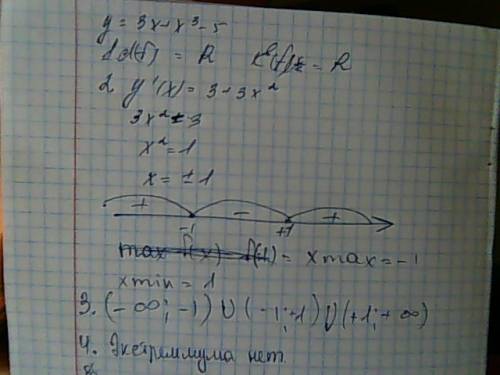 y = 3x + x³ - 5
1. d(f) = R E(f) = R
2. y'(x) = 3 + 3x²
3x² = 3
x² = 1
x = ± 1
+ - +
-1 +1
max f(x) = f(1) = x max = -1
x min = 1
3. (- ∞; -1) U (-1; +1) U (+1; + ∞)
4. Экстремлума нет